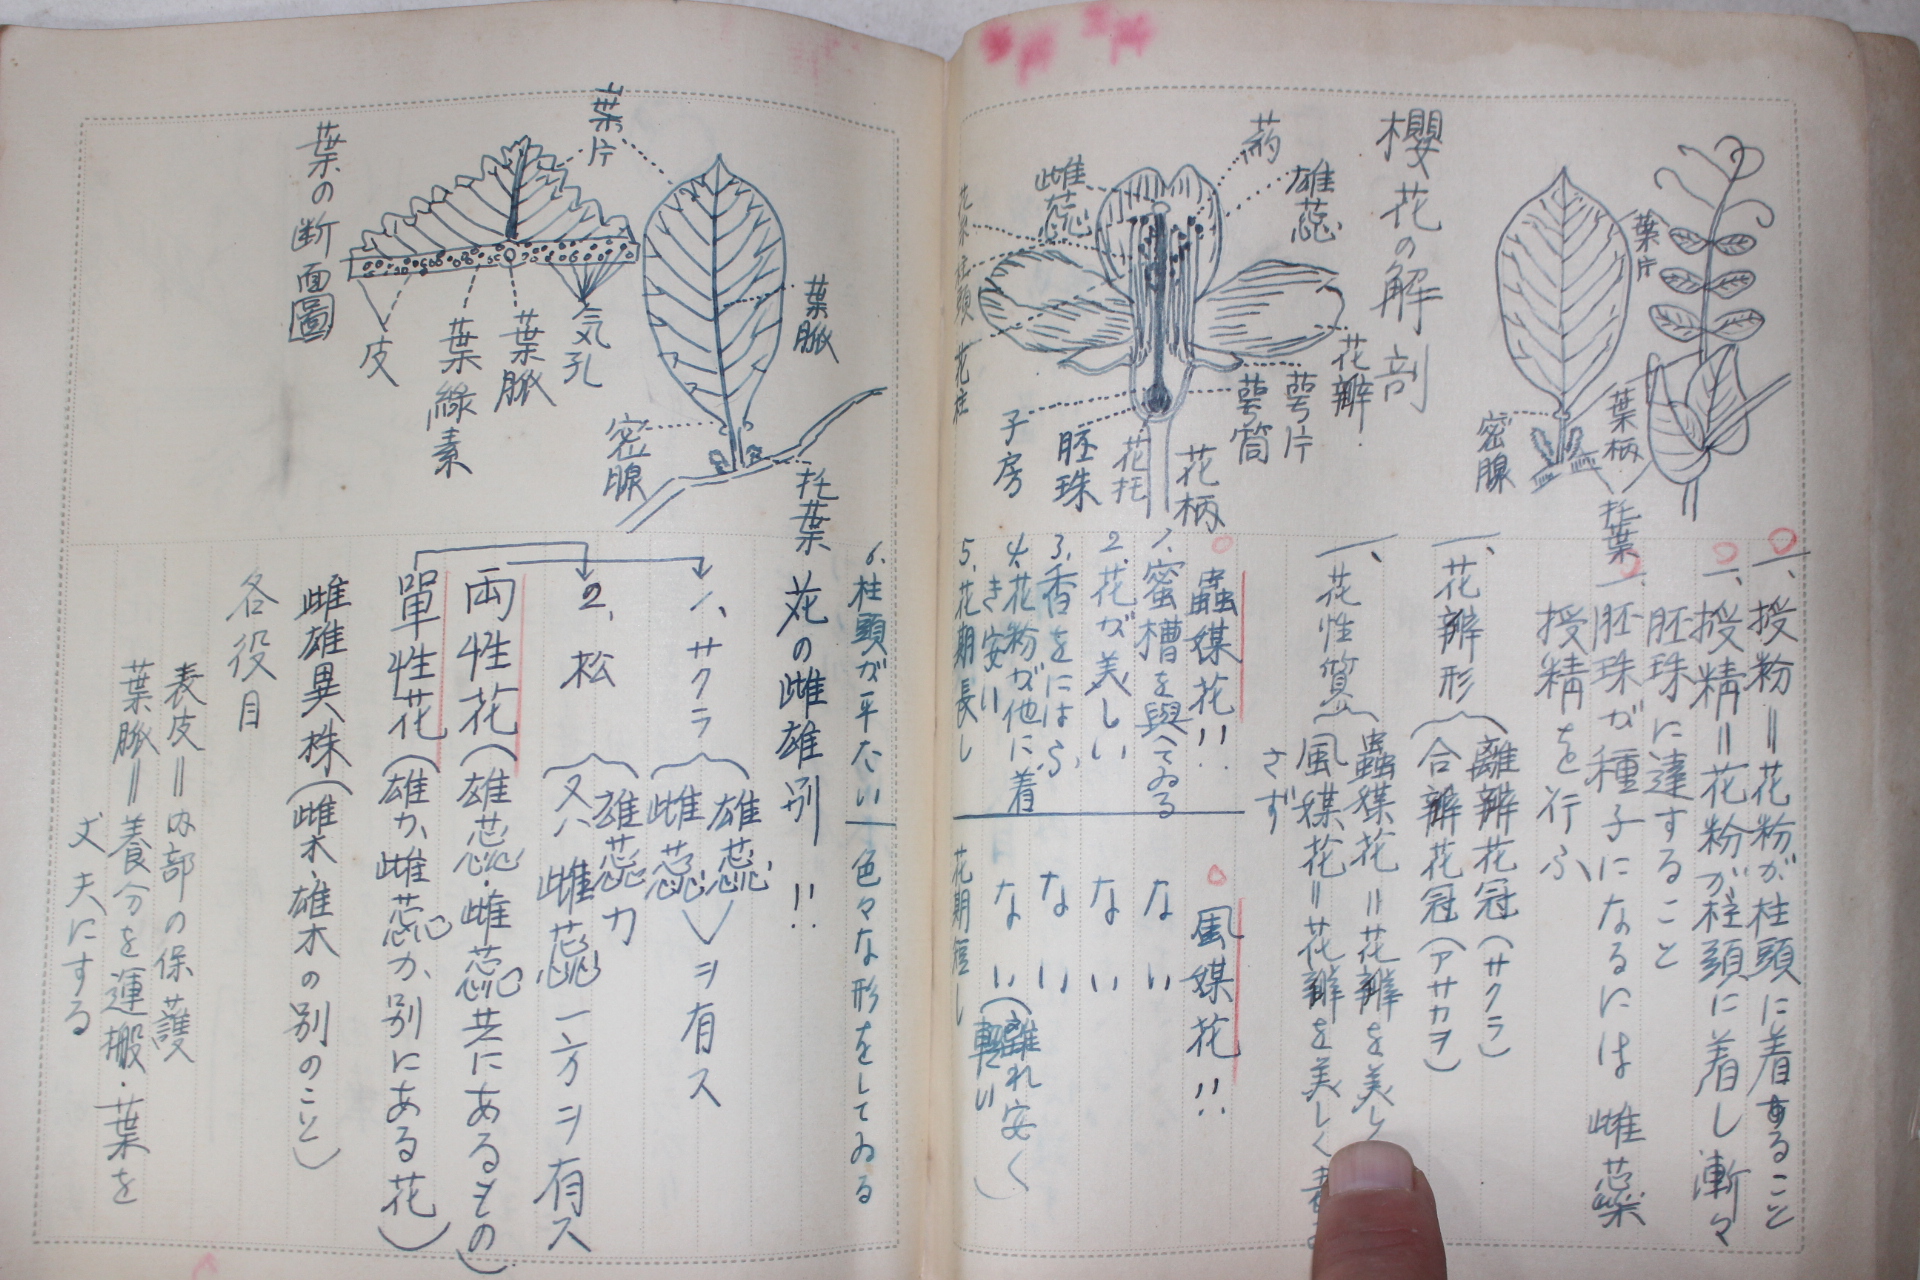 櫻花の解剖
葉片
葉柄
托葉
密腺
葯
雄蕊
雌蕊
柱頭
花柱
花瓣
萼片
萼筒
花柄
花托
胚珠
子房
一、授粉＝花粉が柱頭に着すること
一、授精＝花粉が柱頭に着し漸々
胚珠に達すること
胚珠が種子になるには 雌蘂
授精を行ふ
一、花瓣形
離瓣花冠（サクラ）
合瓣花冠（アサカヲ）
一、花性質
蟲媒花＝花瓣を美しく
風媒花＝花瓣を美しく
さず
蟲媒花!!
1、蜜槽を與へてゐる
2、花が美しい
3、香をにほふ
4、花粉が他に着
き安い
5、花期長し
風媒花!!
ない
ない
ない
ない（離れ安く
軽い）
花期短し
葉片
葉脈
密腺
托葉
葉の断面圖
気孔
葉脈
葉緑素
皮
6、柱頭が平たい
色々な形をしてゐる
花の雌雄別!!
1、サクラ
雄蕊
雌蕊
ヲ有ス
2、松
雄蕊カ
又ハ雌蕊
一方ヲ有ス
両性花（雄蕊・雌蕊共にあるもの）
單性花（雄か、雌蕊か、別にある花）
雌雄異株（雌木・雄木の別のこと）
各役目
表皮＝内部の保護
葉脈＝養分を運搬・葉を
丈夫にする